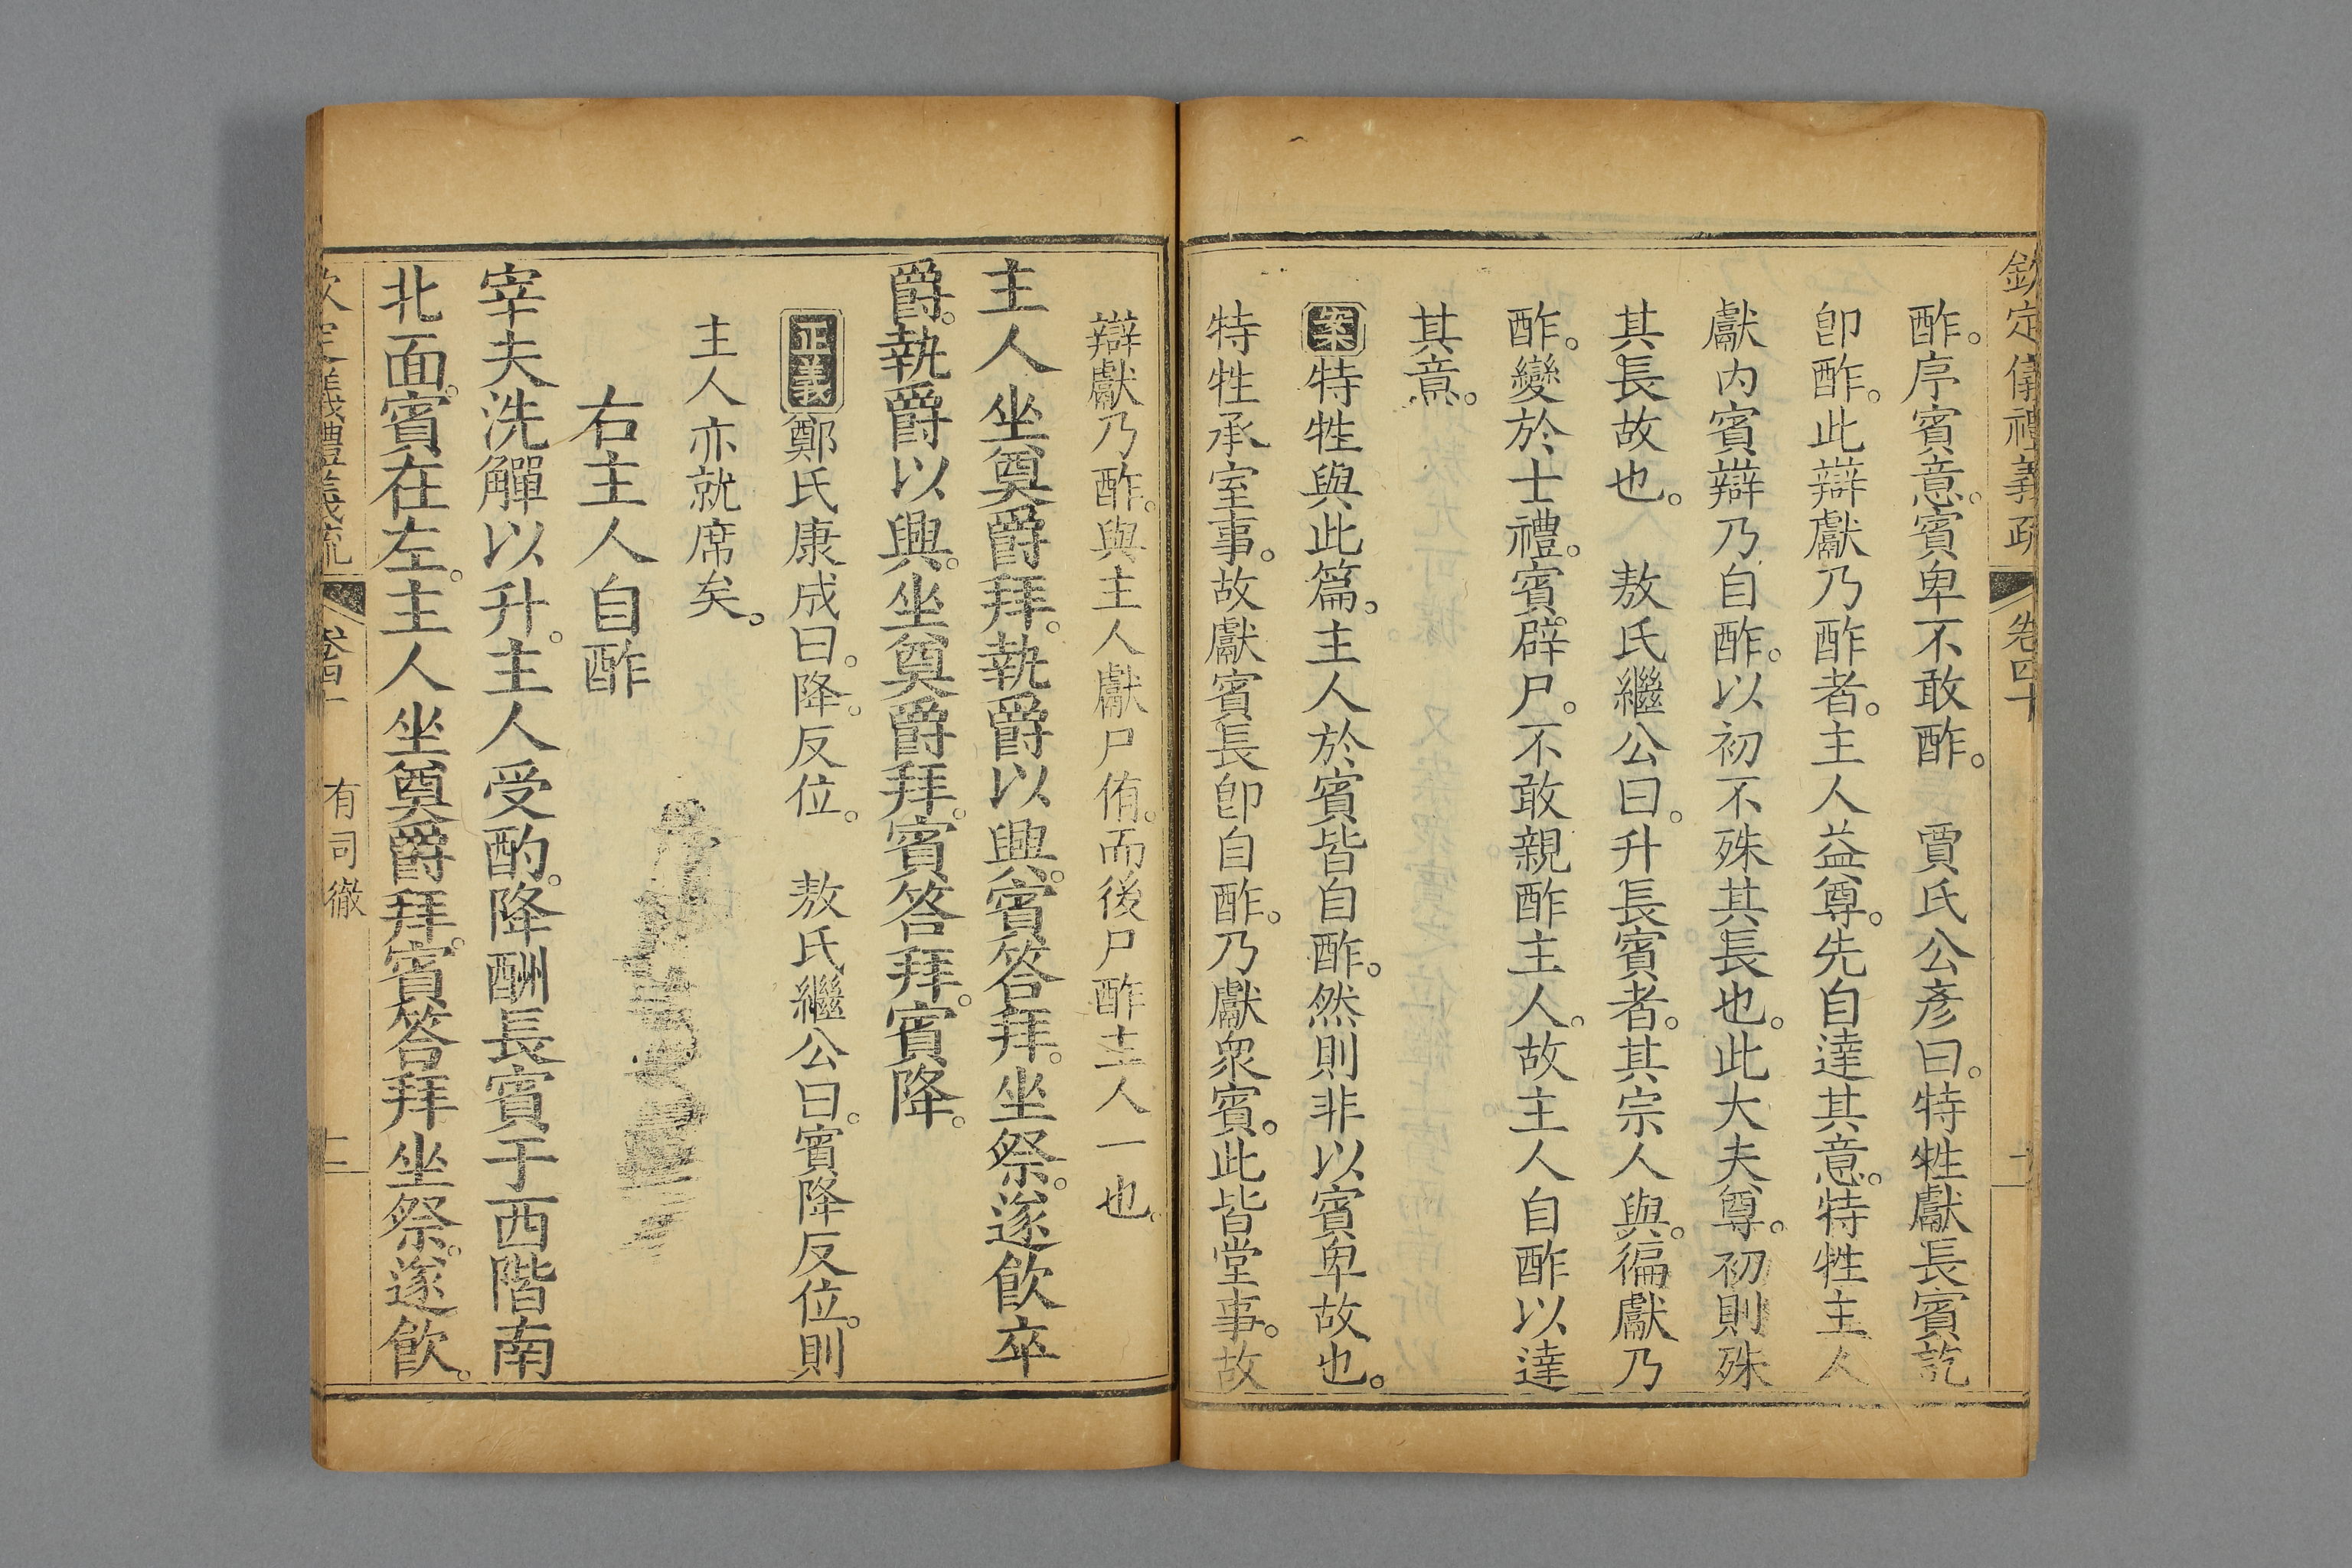 欽定儀禮義疏 卷四十
酢。序賓意。賓卑不敢酢。 賈氏公彥曰。特牲獻長賓訖
卽酢。此辯獻乃酢者。主人益尊。先自達其意。特牲主人
獻內賓辯乃自酢。以初不殊其長也。此大夫尊。初則殊
其長故也。 敖氏繼公曰。升長賓者。其宗人與。徧獻乃
酢。變於士禮。賓辟尸。不敢親酢主人。故主人自酢以達
其意。
案特牲與此篇。主人於賓皆自酢。然則非以賓卑故也。
特牲承室事。故獻賓長卽自酢。乃獻衆賓。此皆堂事。故
辯獻乃酢。與主人獻尸侑。而後尸酢主人一也。
主人坐奠爵拜。執爵以興。賓答拜。坐祭。遂飮卒
爵。執爵以興。坐奠爵拜。賓答拜。賓降。
正義鄭氏康成曰。降。反位。 敖氏繼公曰。賓降反位。則
主人亦就席矣。
右主人自酢
宰夫洗觶以升。主人受酌。降酬長賓于西階南
北面。賓在左。主人坐奠爵拜。賓答拜坐祭。遂飮。
欽定儀禮義疏 卷四十 有司徹 十二